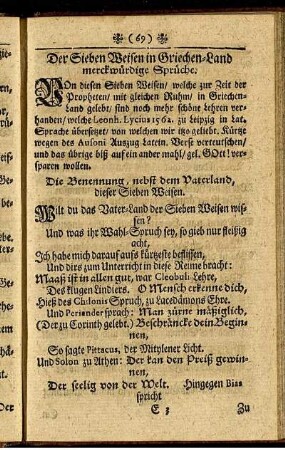 (69)
Der Sieben Weisen in Griechen-Land
merckwürdige Sprüche.
VOn diesen Sieben Weisen/ welche zur Zeit der
Propheten/ mit gleichen Ruhm/ in Griechen-
Land gelebt/ sind noch mehr schöne Lehren ver-
handen/ welche Leonh. Lycius 1562. zu Leipzig in Lat.
Sprache übersetzet/ von welchen wir itzo geliebt. Kürtze
wegen des Ausoni Auszug Latein. Verse verteutschen/
und das übrige biß auf ein ander mahl/ gel. GOtt! ver-
sparen wollen.
Die Benennung, nebst dem Vaterland,
dieser Sieben Weisen.
Wilt du das Vater-Land der Sieben Weisen wis-
sen?
Und was ihr Wahl-Spruch sey, so gieb nur fleißig
acht,
Ich habe mich darauf aufs kürtzeste beflissen,
Und dirs zum Unterricht in diese Reime bracht:
Maaß ist in allen gut, war Cleobuli Lehre,
Des klugen Lindiers. O Mensch erkenne dich,
Hieß des Chilonis Spruch, zu Lacedämons Ehre.
Und Periander sprach: Man zürne mäßiglich,
(Der zu Corinth gelebt.) Beschräncke dein Begin-
nen,
So sagte Pittacus, der Mitylener Licht.
Und Solon zu Athen: Der kan den Preiß gewin-
nen,
Der seelig von der Welt. Hingegen Bias
spricht
E 3 Zu